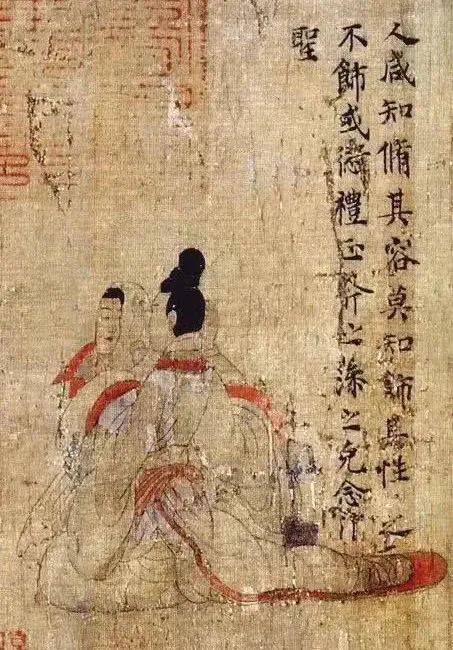 人咸知脩其容莫知飾其性〻之
不飾或愆禮正斧之藻之克念作
聖